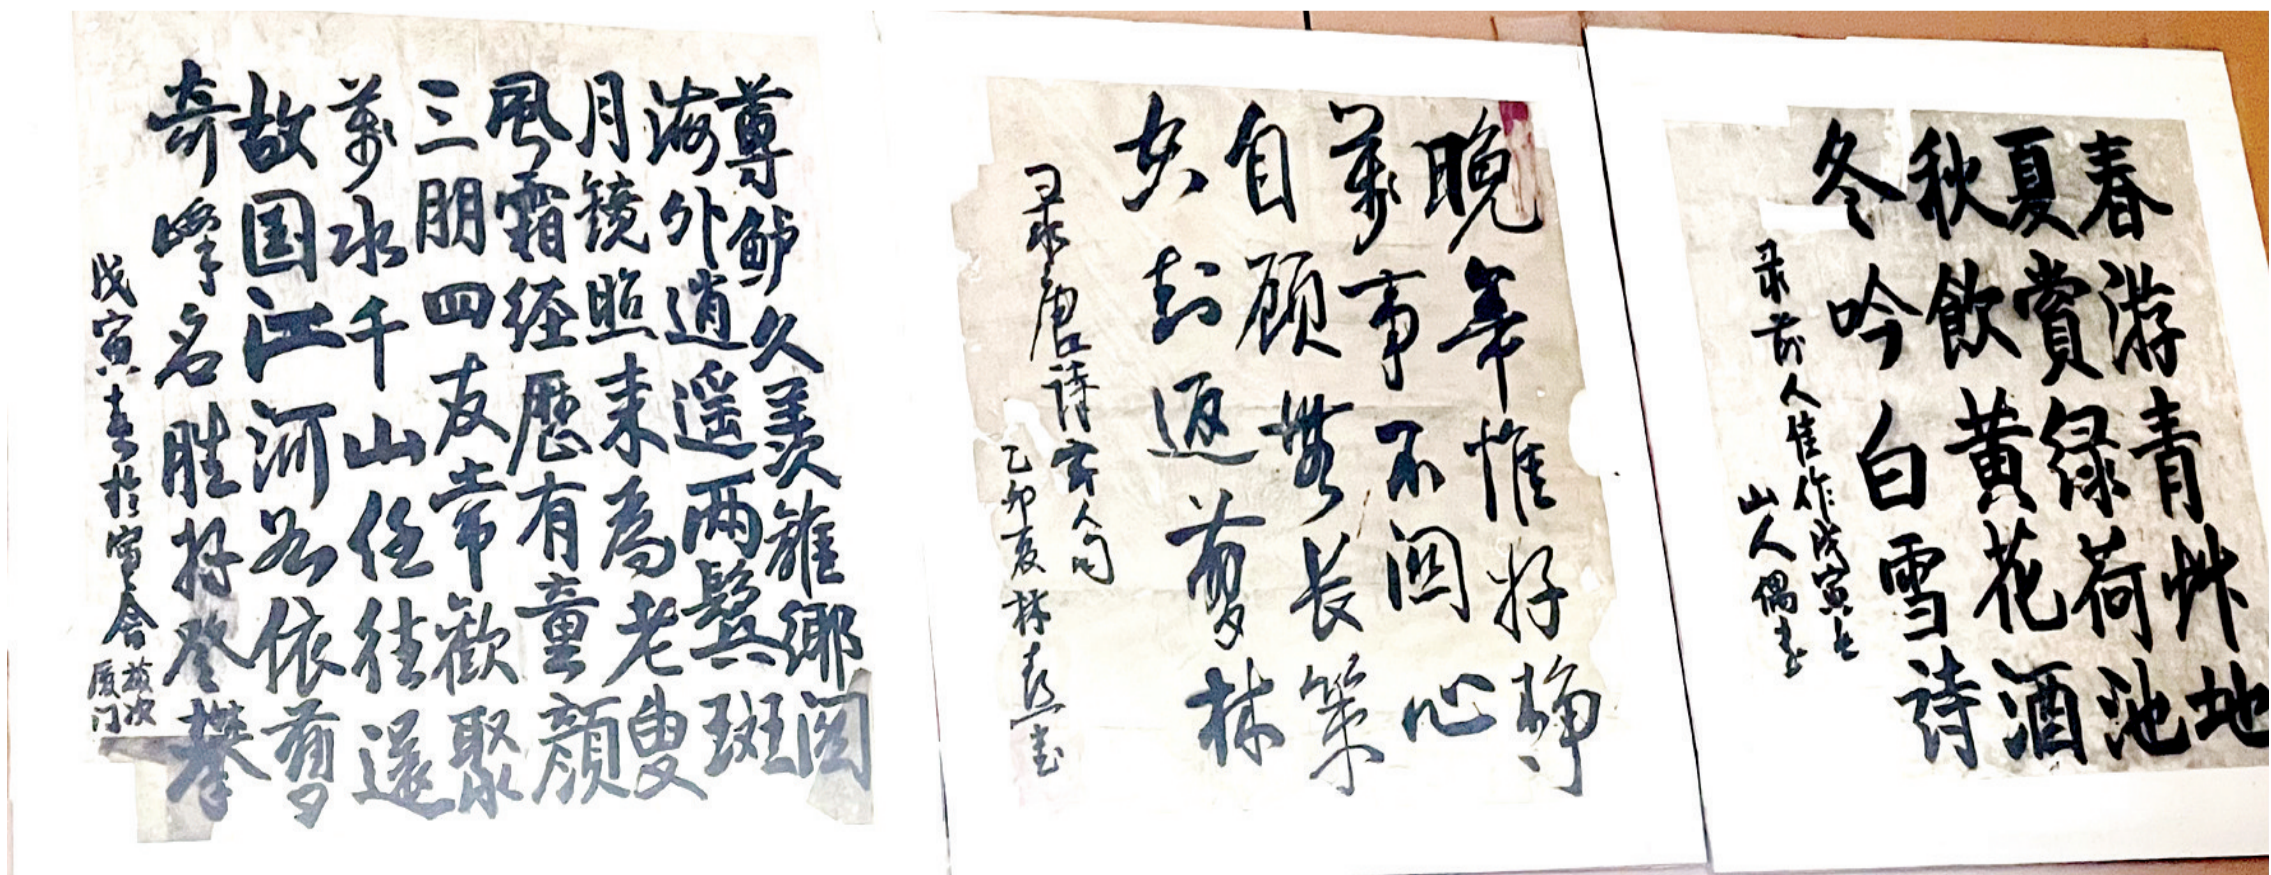 尊鲈久羡離鄉関
海外逍遥两鬓斑
月镜照来為老叟
風霜经歷有童顔
三朋四友常歡聚
萬水千山任往還
故国江河依舊
奇峯名胜好登攀
戊寅春於寓舍
厦门
晚年惟好静
萬事不関心
自顾無长策
空知返舊林
录唐詩人句
乙卯夏林書
春游青艸地
夏賞绿荷池
秋飲黄花酒
冬吟白雪詩
录前人佳作戊寅
山人偶書